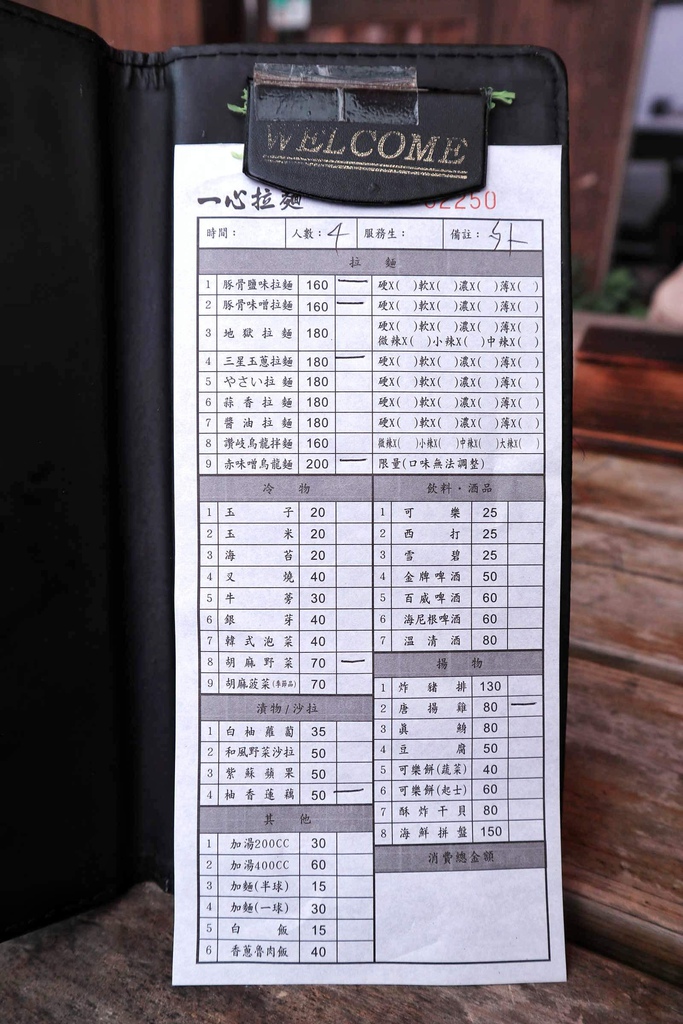 WELCOME
一心拉麵 02250
時間： 人數：4 服務生： 備註：外
拉 麵
1 豚骨鹽味拉麵 160 一 硬X( )軟X( )濃X( )薄X( )
2 豚骨味噌拉麵 160 一 硬X( )軟X( )濃X( )薄X( )
3 地獄拉麵 180 硬X( )軟X( )濃X( )薄X( )
微辣X( )小辣X( )中辣X( )
4 三星玉蔥拉麵 180 一 硬X( )軟X( )濃X( )薄X( )
5 やさい拉麵 180 硬X( )軟X( )濃X( )薄X( )
6 蒜香拉麵 180 硬X( )軟X( )濃X( )薄X( )
7 醬油拉麵 180 硬X( )軟X( )濃X( )薄X( )
8 讚岐烏龍拌麵 160 微辣X( )小辣X( )中辣X( )大辣X( )
9 赤味噌烏龍麵 200 一 限量(口味無法調整)
冷 物
1 玉子 20
2 玉米 20
3 海苔 20
4 叉燒 40
5 牛蒡 30
6 銀芽 40
7 韓式泡菜 40
8 胡麻野菜 70 一
9 胡麻菠菜(季節品) 70
漬物/沙拉
1 白柚蘿蔔 35
2 和風野菜沙拉 50
3 紫蘇蘋果 50
4 柚香蓮藕 50 一
其 他
1 加湯200CC 30
2 加湯400CC 60
3 加麵(半球) 15
4 加麵(一球) 30
5 白飯 15
6 香蔥魯肉飯 40
飲料·酒品
1 可樂 25
2 西打 25
3 雪碧 25
4 金牌啤酒 50
5 百威啤酒 60
6 海尼根啤酒 60
7 溫清酒 80
揚 物
1 炸豬排 130
2 唐揚雞 80 一
3 真鯛 80
4 豆腐 50
5 可樂餅(蔬菜) 40
6 可樂餅(起士) 60
7 酥炸干貝 80
8 海鮮拼盤 150
消費總金額